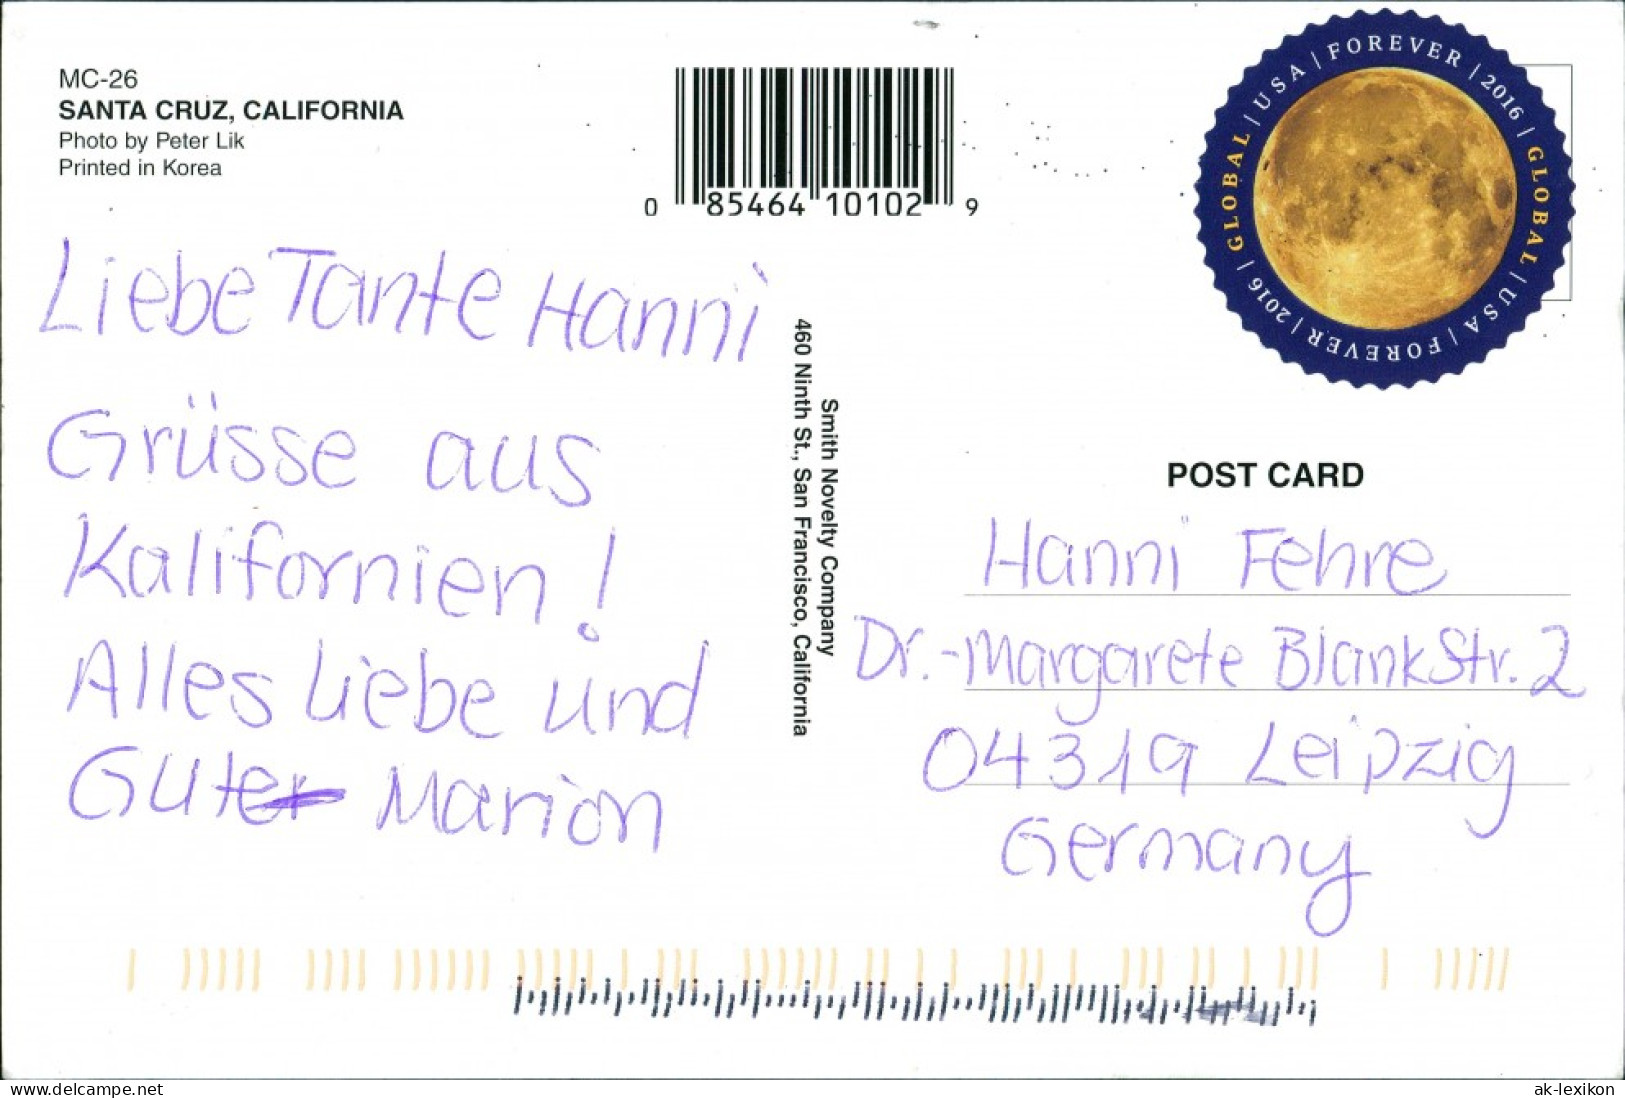 MC-26
SANTA CRUZ, CALIFORNIA
Photo by Peter Lik
Printed in Korea
0 85464 10102 9
GLOBAL | USA | FOREVER | 2016 | GLOBAL | USA | FOREVER | 2016 |
Liebe Tante Hanni
Grüsse aus
Kalifornien!
Alles Liebe und
Gute Marion
Smith Novelty Company
460 Ninth St., San Francisco, California
POST CARD
Hanni Fehre
Dr.-Margarete Blank Str. 2
04319 Leipzig
Germany
www.delcampe.net
ak-lexikon